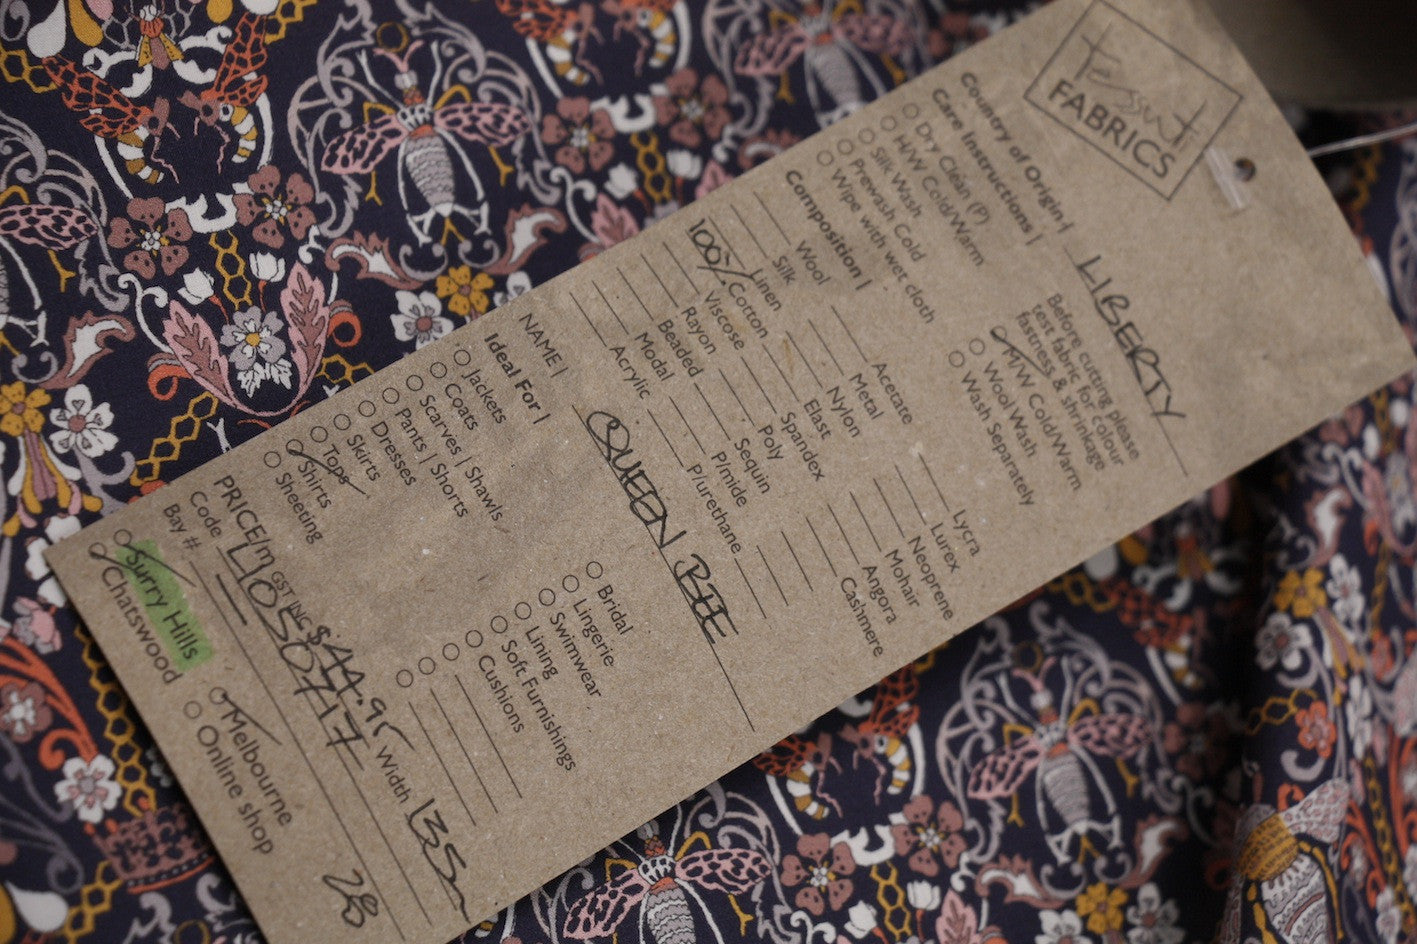 Tessuti
FABRICS
Country of Origin | LIBERTY
Care Instructions |
Dry Clean (P)
H/W Cold/Warm
Silk Wash
Prewash Cold
Wipe with wet cloth
Before cutting please
test fabric for colour
fastness & shrinkage
M/W Cold/Warm
Wool Wash
Wash Separately
Composition |
Wool
Silk
Linen
100% Cotton
Viscose
Rayon
Beaded
Modal
Acrylic
Acetate
Metal
Nylon
Elast
Spandex
Poly
Sequin
P/mide
P/urethane
Lycra
Lurex
Neoprene
Mohair
Angora
Cashmere
NAME | QUEEN BEE
Ideal For |
Jackets
Coats
Scarves | Shawls
Pants | Shorts
Dresses
Skirts
Tops
Shirts
Sheeting
Bridal
Lingerie
Swimwear
Lining
Soft Furnishings
Cushions
PRICE/m GST INC $44.95 Width 135
Code L0350717
Bay # 280
Surry Hills
Chatswood
Melbourne
Online shop